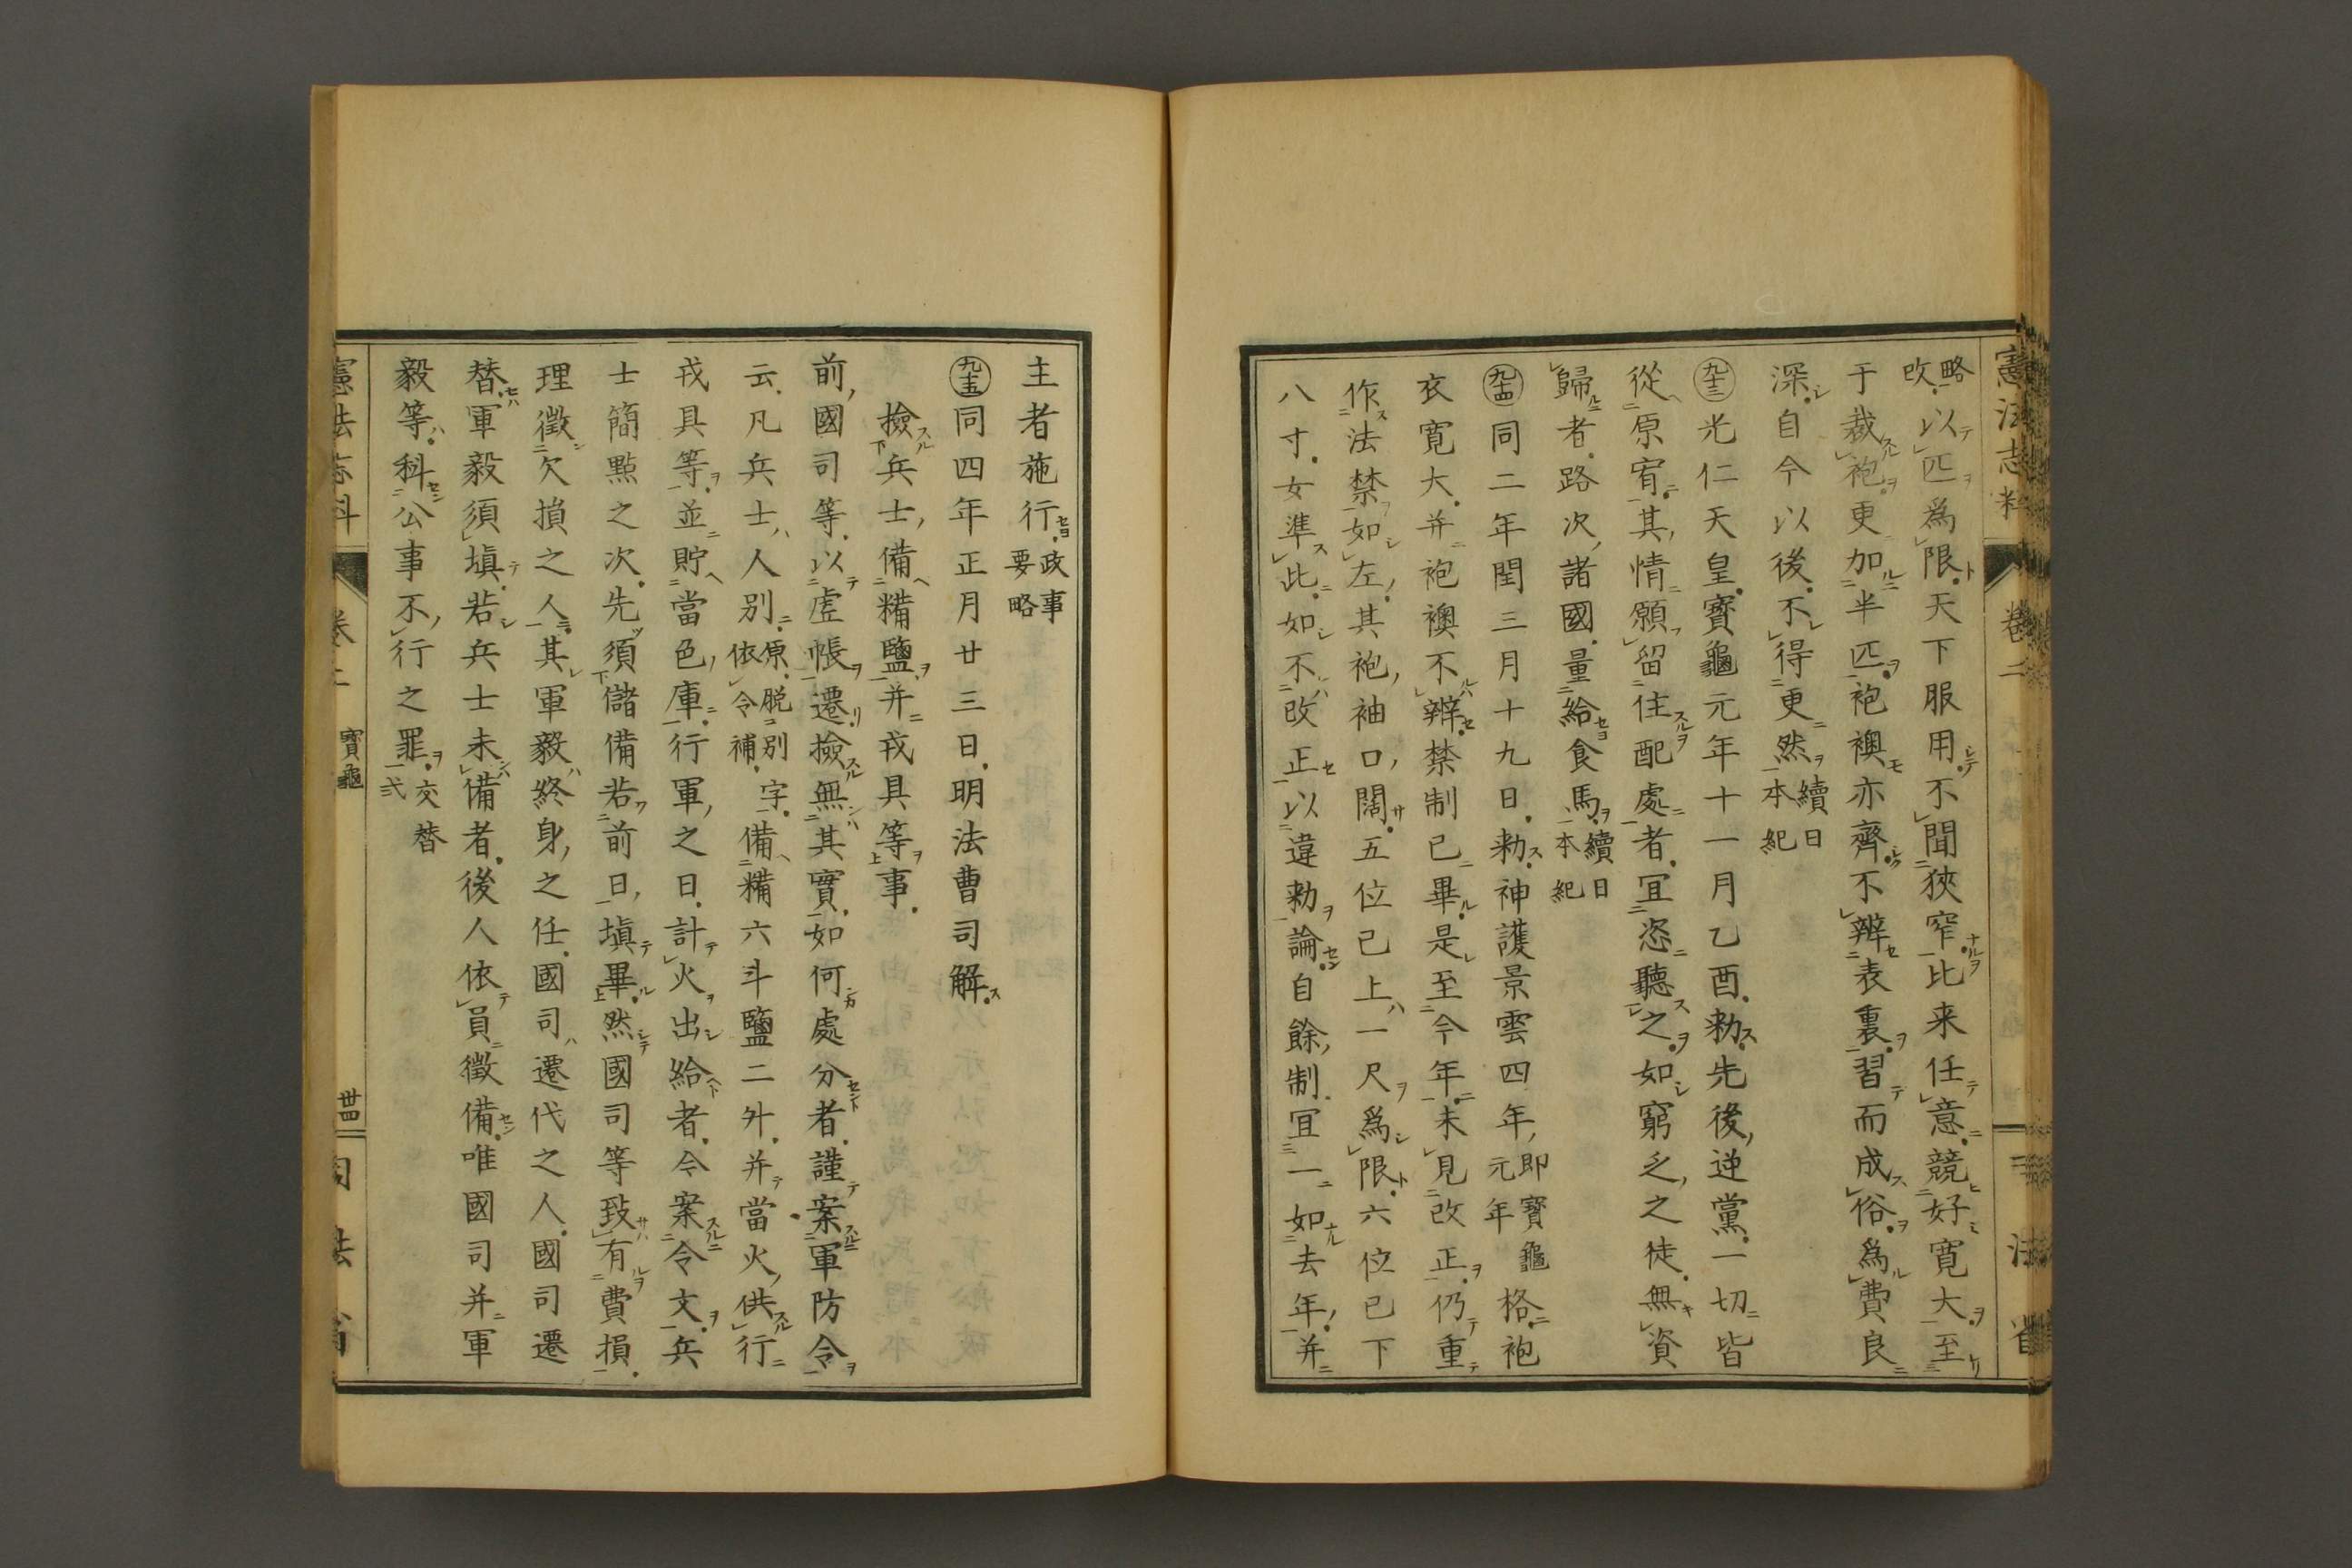 憲法志料 卷二 法省
略攺以匹爲限天下服用不聞狹窄比来任意競好寛大至
于裁袍更加半匹袍襖亦齊不辨表裏習而成俗爲費良
深自今以後不得更然續日本紀
九十三光仁天皇寳龜元年十一月乙酉勅先後逆黨一切皆
從原宥其情願留住配處者冝恣聽之如窮乏之徒無資
歸者路次諸國量給食馬續日本紀
九十四同二年閏三月十九日勅神護景雲四年即寳龜元年格袍
衣寛大并袍襖不辨禁制已畢是至今年未見改正仍重
作法禁如左其袍袖口闊五位已上一尺爲限六位已下
八寸女準此如不改正以違勅論自餘制冝一如去年并
主者施行政事要略
九十五同四年正月廿三日明法曹司解
撿兵士備糒鹽并戎具等事
前國司等以虗帳遷撿無其實如何處分者謹案軍防令
云凡兵士人別原脱別字依令補備糒六斗鹽二升并當火供行
戎具等並貯當色庫行軍之日計火出給者令案令文兵
士簡點之次先須儲備若前日填畢然國司等致有費損
理徴欠損之人其軍毅終身之任國司遷代之人國司遷
替軍毅須填若兵士未備者後人依員徴備唯國司并軍
毅等科公事不行之罪交替式
憲法志料 卷二 寳龜 丗四 司法省